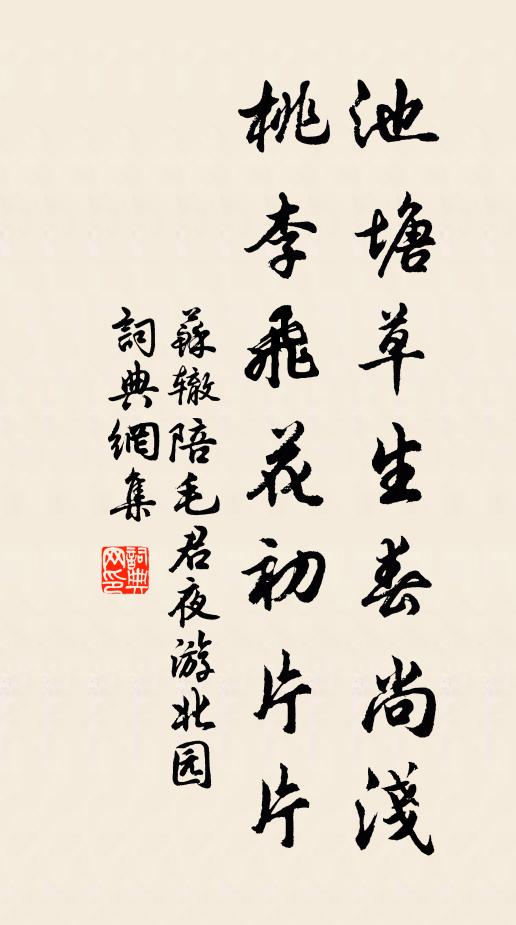 池塘草生春尚淺
桃李飛花初片片
蘇辙陪毛君夜游北园
詞典網集
詞典
网印